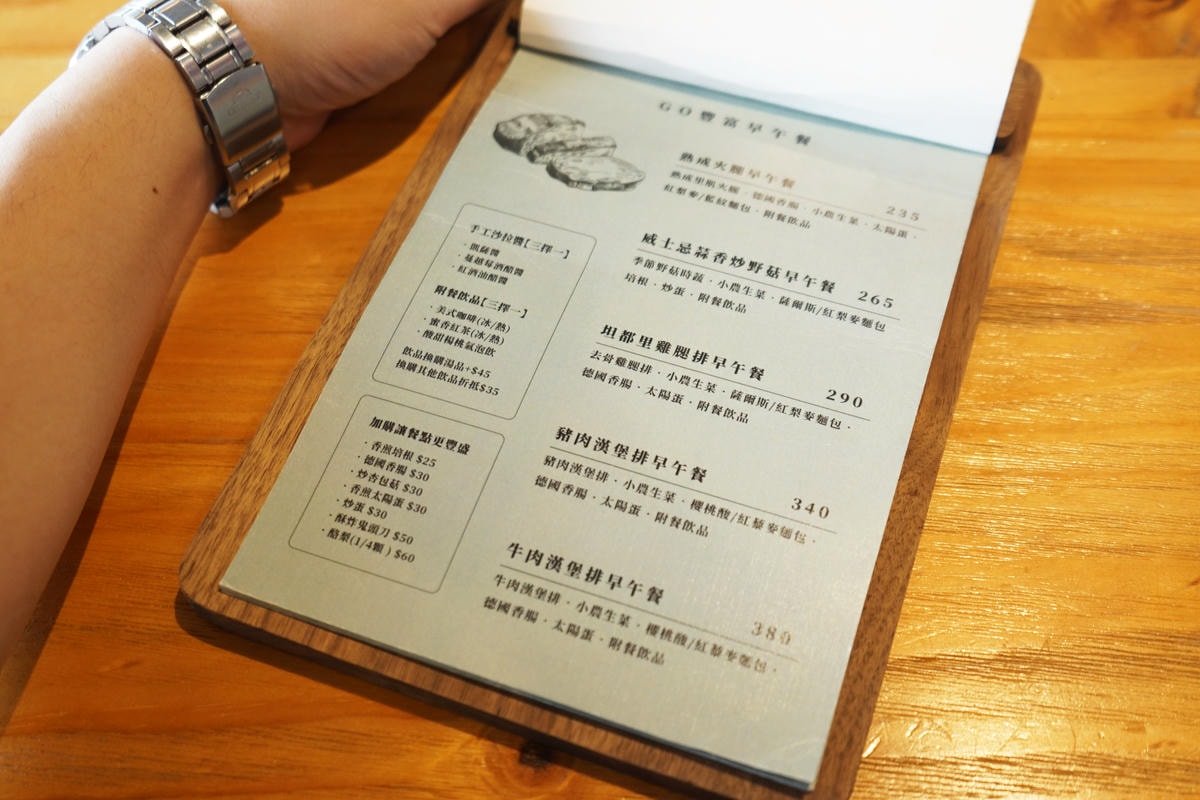 GO豐富早午餐
熟成火腿早午餐 235
熟成里肌火腿・德國香腸・小農生菜・太陽蛋・
紅梨麥/藍紋麵包・附餐飲品
威士忌蒜香炒野菇早午餐 265
季節野菇時蔬・小農生菜・薩爾斯/紅梨麥麵包
培根・炒蛋・附餐飲品
坦都里雞腿排早午餐 290
去骨雞腿排・小農生菜・薩爾斯/紅梨麥麵包・
德國香腸・太陽蛋・附餐飲品
豬肉漢堡排早午餐 340
豬肉漢堡排・小農生菜・櫻桃酸/紅藜麥麵包・
德國香腸・太陽蛋・附餐飲品
牛肉漢堡排早午餐 380
牛肉漢堡排・小農生菜・櫻桃酸/紅藜麥麵包・
德國香腸・太陽蛋・附餐飲品
手工沙拉醬[三擇一]
・凱薩醬
・蔓越莓酒醋醬
・紅酒油醋醬
附餐飲品[三擇一]
・美式咖啡(冰/熱)
・蜜香紅茶(冰/熱)
・酸甜楊桃氣泡飲
飲品換購湯品+$45
換購其他飲品折抵$35
加購讓餐點更豐盛
・香煎培根 $25
・德國香腸 $30
・炒杏包菇 $30
・香煎太陽蛋 $30
・炒蛋 $30
・酥炸鬼頭刀 $50
・酪梨(1/4顆) $60